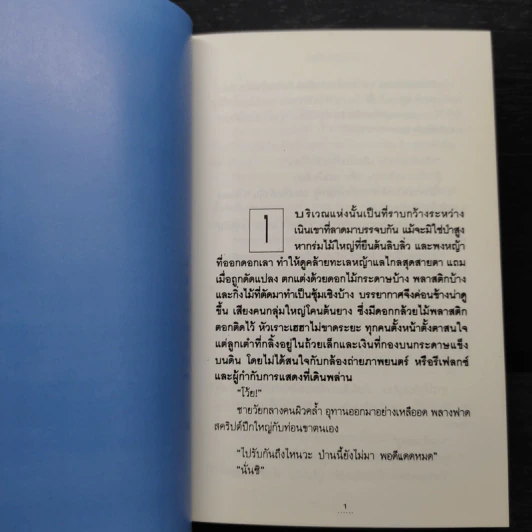 1
บริเวณแห่งนั้นเป็นที่ราบกว้างระหว่าง
เนินเขาที่ลาดมาบรรจบกัน แม้จะมิใช่ป่าสูง
หากร่มไม้ใหญ่ที่ยืนต้นลิบลิ่ว และพงหญ้า
ที่ออกดอกเลา ทำให้ดูคล้ายทะเลหญ้าแลไกลสุดสายตา แถม
เมื่อถูกดัดแปลง ตกแต่งด้วยดอกไม้กระดาษบ้าง พลาสติกบ้าง
และกิ่งไม้ที่ตัดมาทำเป็นซุ้มเชิงบ้าง บรรยากาศจึงค่อนข้างน่าดู
ขึ้น เสียงคนกลุ่มใหญ่โคนต้นยาง ซึ่งมีดอกกล้วยไม้พลาสติก
ดอกติดไว้ หัวเราะเฮฮาไม่ขาดระยะ ทุกคนตั้งหน้าตั้งตาสนใจ
แต่ลูกเต๋าที่กลิ้งอยู่ในถ้วยเล็กและเงินที่กองบนกระดาษแข็ง
บนดิน โดยไม่ได้สนใจกับกล้องถ่ายภาพยนตร์ หรือรีเฟลกซ์
และผู้กำกับการแสดงที่เดินพล่าน
"โว้ย!"
ชายวัยกลางคนผิวคล้ำ อุทานออกมาอย่างเหลืออด พลางฟาด
สคริปต์ปึกใหญ่กับท่อนขาตนเอง
"ไปรับกันถึงไหนวะ ป่านนี้ยังไม่มา พอดีแดดหมด"
"นั่นซิ"
1